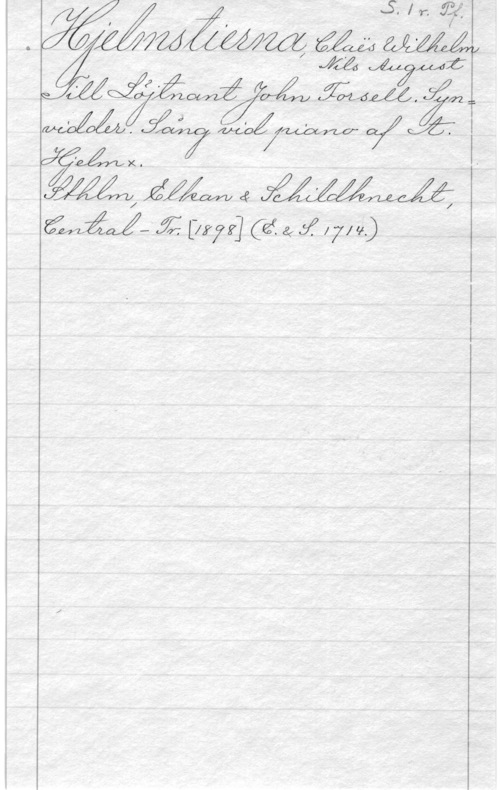 S. 1 r. Pf.
Hjelmstierna, Claës Wilhelm
Nils August
Till Löjtnant John Forsell. Syn=
vidder. Sång vid piano af A.
Hjelm x.
Sthlm, Elkan & Schildknecht,
Central-Tr. [1898] (E. & S. 1714.)